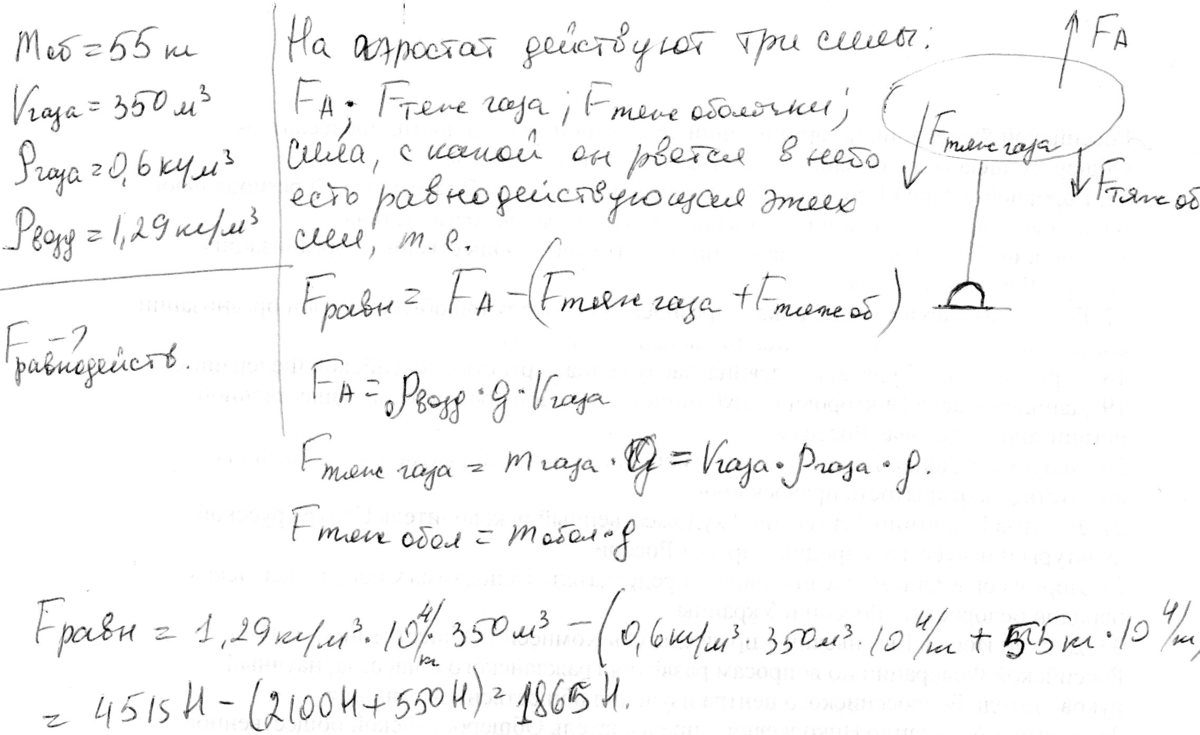 mоб = 55 кг
Vгаза = 350 м³
ρгаза = 0,6 кг/м³
ρвозд = 1,29 кг/м³
Fравнодейств. – ?
На аэростат действуют три силы:
FА; Fтяж газа; Fтяж оболочки;
сила, с какой он рвется в небо
есть равнодействующая этих
сил, т.е.
Fравн = FА – (Fтяж газа + Fтяж об)
FА = ρвозд · g · Vгаза
Fтяж газа = mгаза · g = Vгаза · ρгаза · g.
Fтяж обол = mобол · g
FА
Fтяж газа
Fтяж об
Fравн = 1,29 кг/м³ · 10 Н/кг · 350 м³ – (0,6 кг/м³ · 350 м³ · 10 Н/кг + 55 кг · 10 Н/кг)
= 4515 Н – (2100 Н + 550 Н) = 1865 Н.